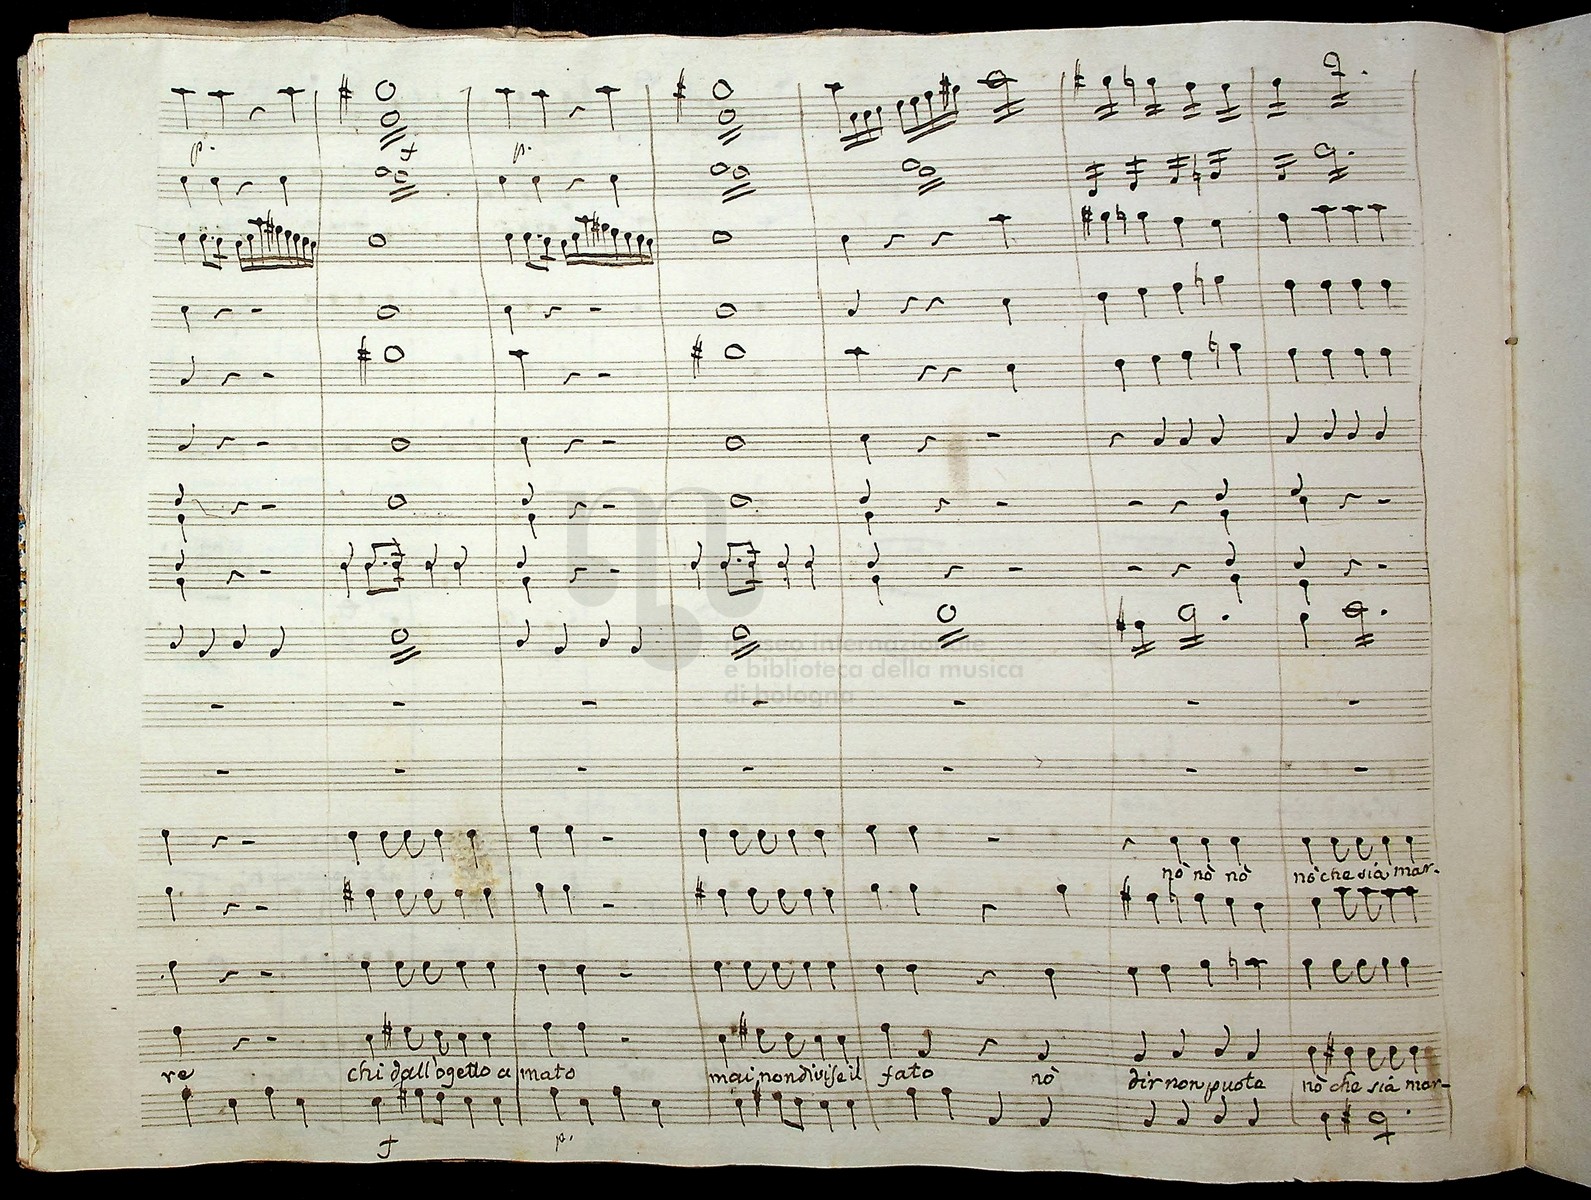 p. f p.
museo internazionale
e biblioteca della musica
di bologna
nò nò nò nò che sia mar-
re chi dall'ogetto a mato mai non divise il fato nò dir non puote nò che sia mar-
f p.